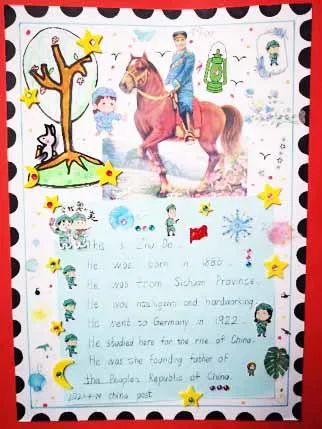 This is Zhu De.
He was born in 1886.
He was from Sichuan Province.
He was intelligent and hardworking.
He went to Germany in 1922.
He studied here for the rise of China.
He was the founding father of
the People's Republic of China.
china post